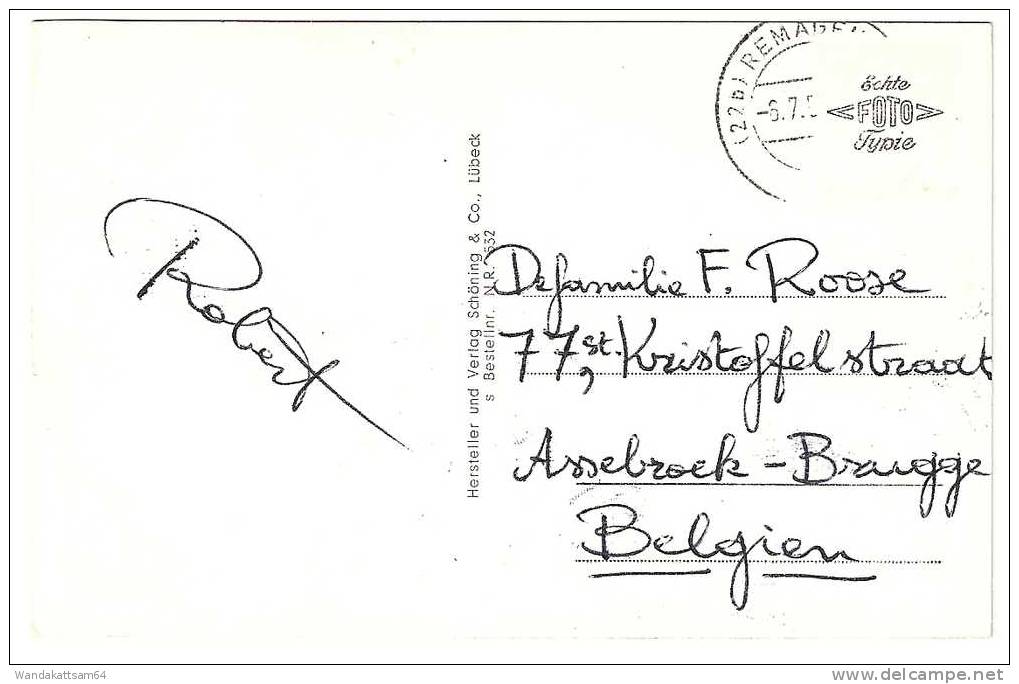 (22b) REMAGEN
-6.7.5
Echte
FOTO
Typie
Hersteller und Verlag Schöning & Co., Lübeck
s Bestellnr. N.R. 532
Robert
De familie F. Roose
77, St. Kristoffelstraat
Assebroek - Brugge
Belgien
Wandakattsam64
www.delcampe.net